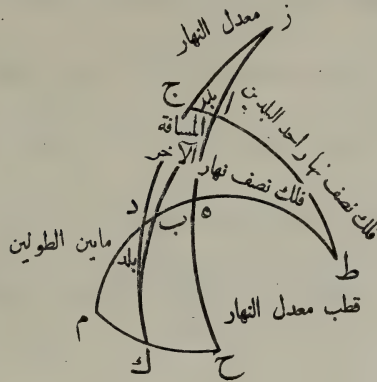 ز
معدل النهار
ج
بلد
ا
المسافة
فلك نصف نهار احد البلدين
الآخر
فلك نصف نهار
د
ب
ه
ما بين الطولين
بلد
ط
قطب معدل النهار
م
ك
ح